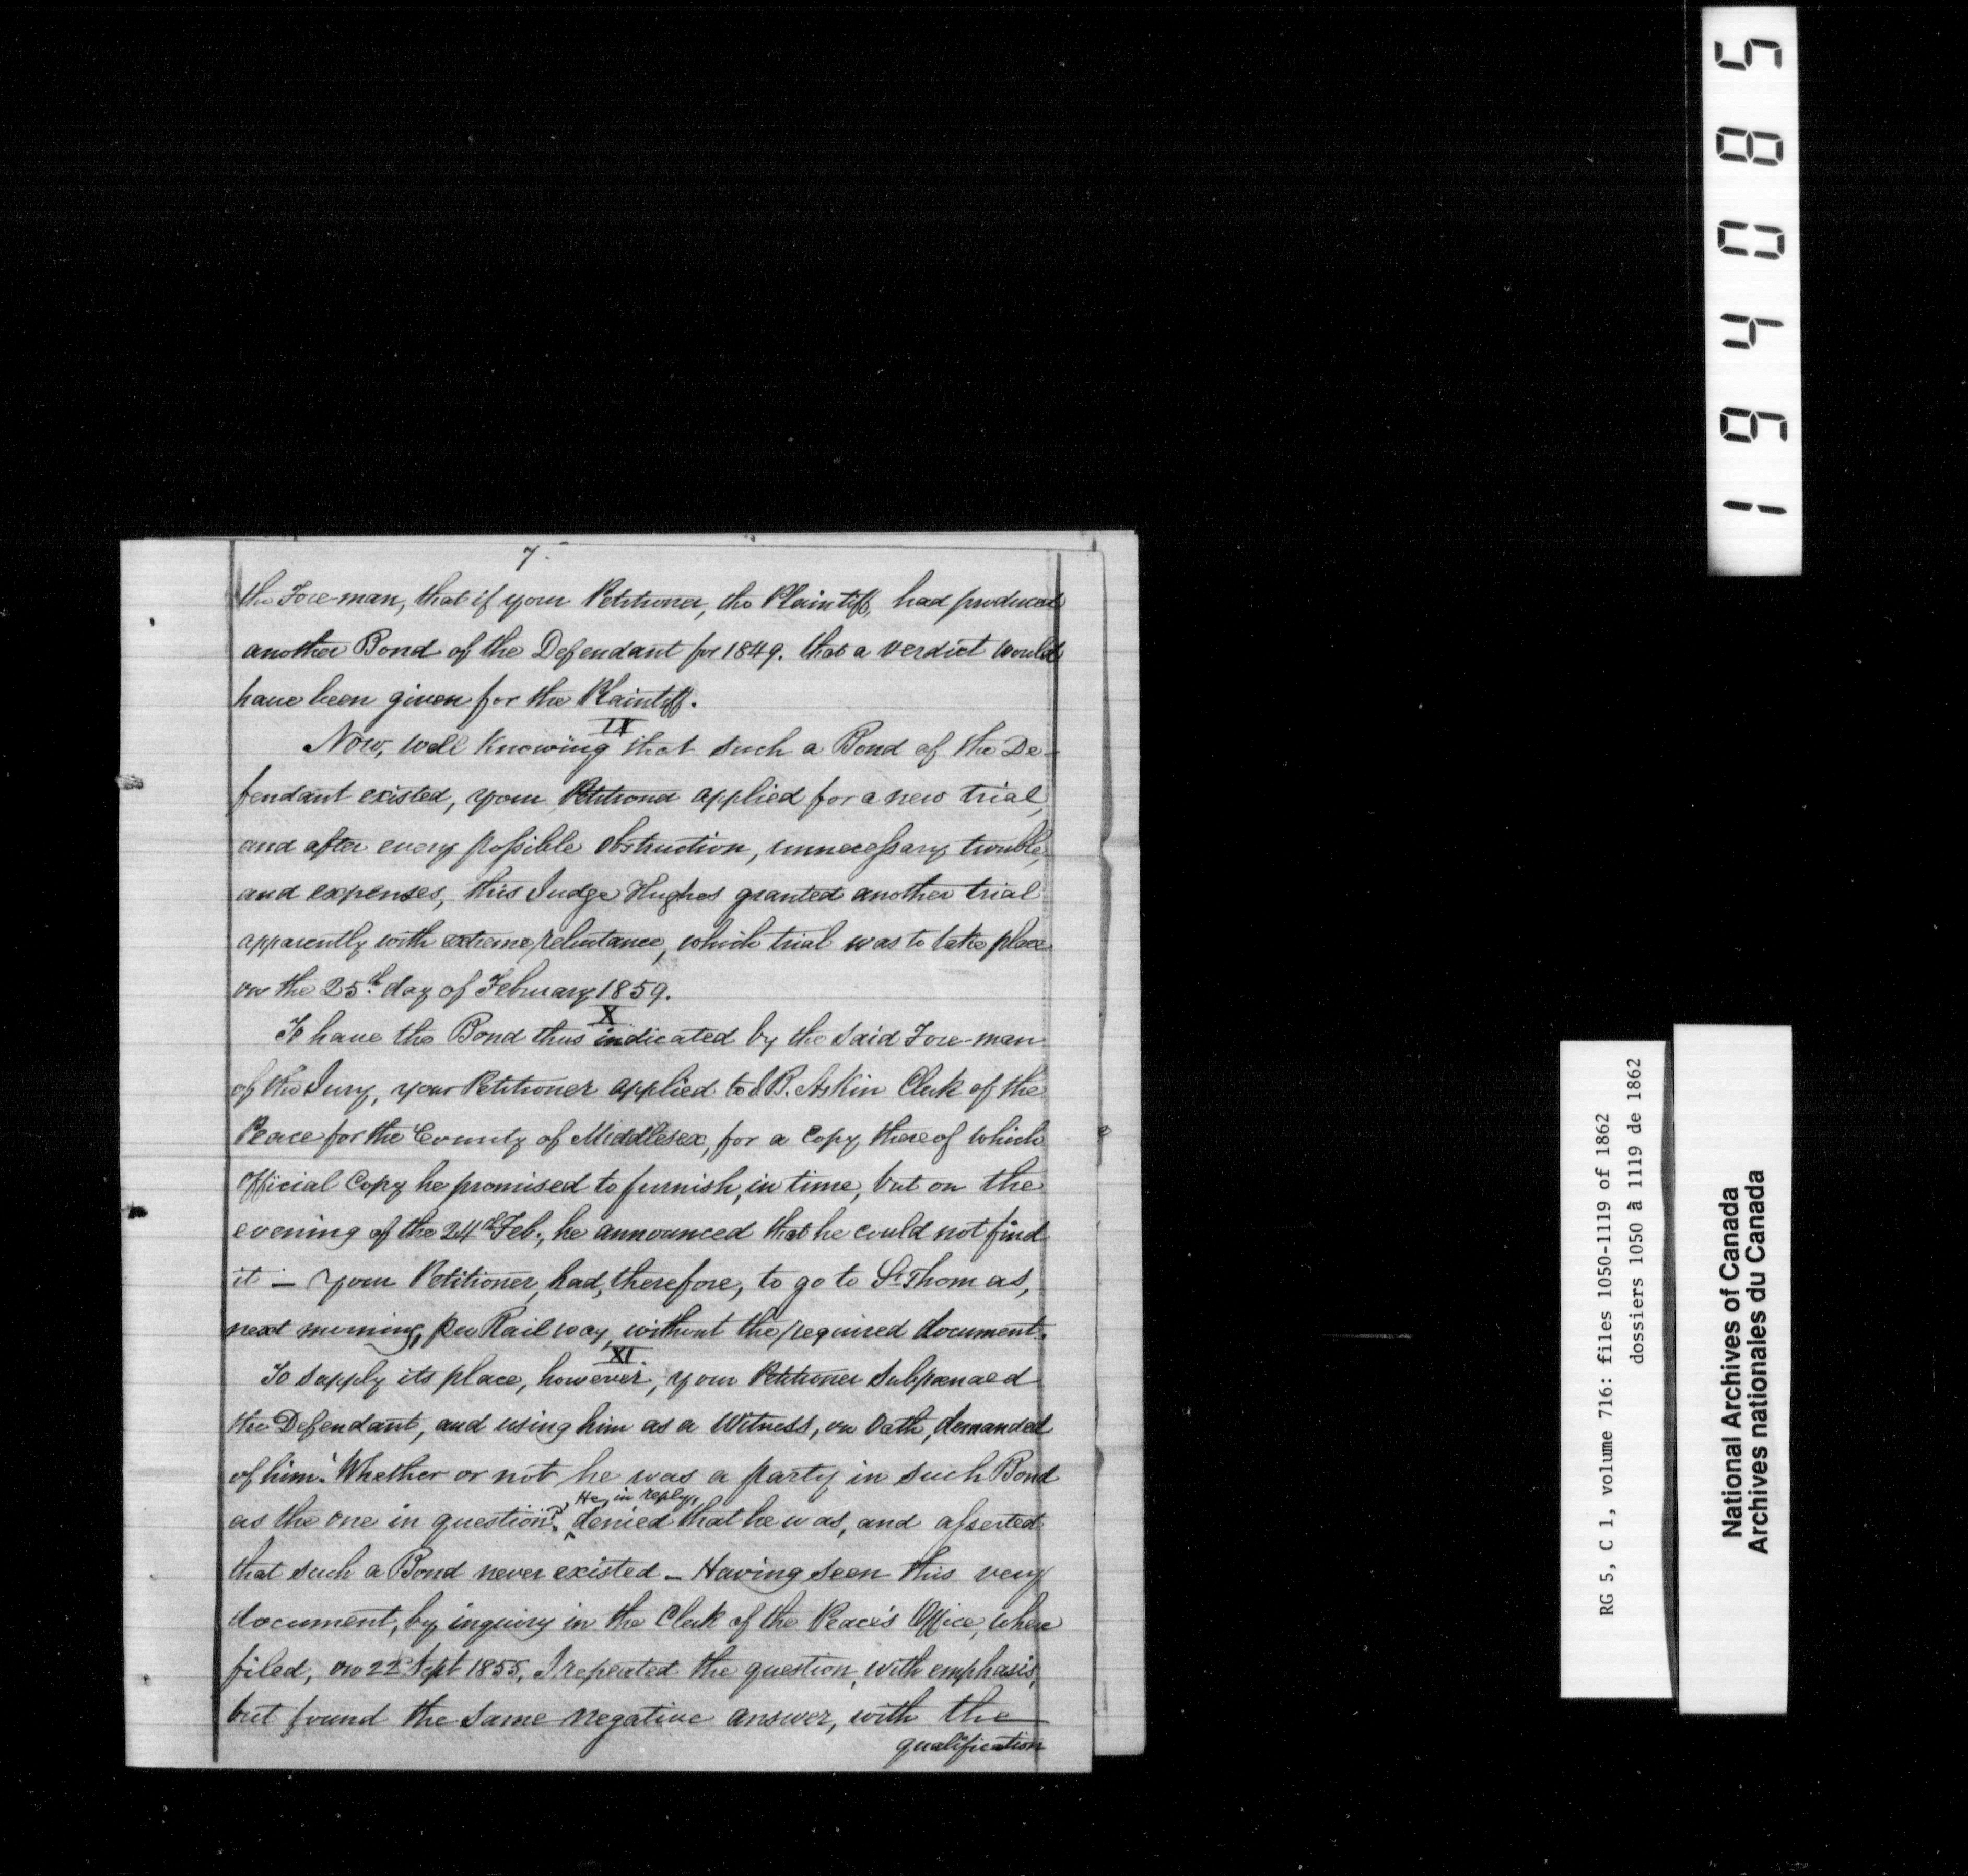 7.
the Fore-man, that if your Petitioner, the Plaintiff, had produced
another Bond of the Defendant for 1849. that a verdict would
have been given for the Plaintiff.
IX
Now, well Knowing that such a Bond of the De-
fendant existed, your Petitioner applied for a new trial,
and after every possible obstruction, unnecessary trouble,
and expenses, this Judge Hughes granted another trial
apparently with extreme reluctance, which trial was to take place
on the 25th day of February 1859.
X
To have the Bond thus indicated by the said Fore-man
of the Jury, your Petitioner applied to J B. Askin Clerk of the
Peace for the County of Middlesex, for a Copy thereof which
Official Copy he promised to furnish, in time, but on the
evening of the 24th Feb., he announced that he could not find
it – Your Petitioner, had, therefore, to go to St Thomas,
next morning, per Railway, without the required document.
XI.
To supply its place, however, your Petitioner Subpœnaed
the Defendant, and using him as a Witness, on Oath, demanded
of him: Whether or not he was a party in such Bond
as the one in question?. He, in reply, denied that he was, and asserted
that such a Bond never existed – Having seen this very
document, by inquiry in the Clerk of the Peace's Office, where
filed, on 22d Sept 1855, I repeated the question, with emphasis,
but found the same negative answer, with the
qualification
1 9 4 0 8 5
RG 5, C 1, volume 716: files 1050-1119 of 1862
dossiers 1050 à 1119 de 1862
National Archives of Canada
Archives nationales du Canada